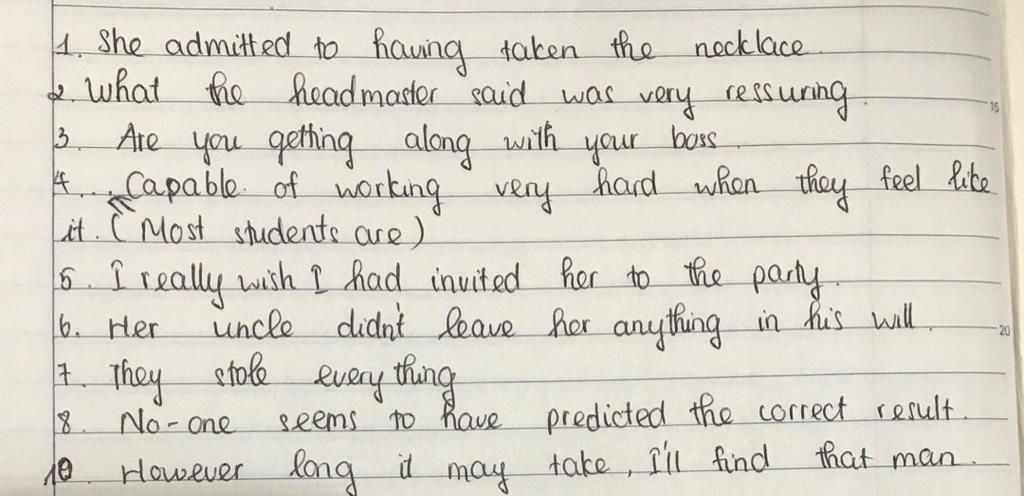 1. She admitted to having taken the necklace.
2. What the headmaster said was very ressuring.
3. Are you getting along with your boss.
4... Capable of working very hard when they feel like
it. (Most students are)
5. I really wish I had invited her to the party.
6. Her uncle didn't leave her anything in his will.
7. They stole everything
8. No-one seems to have predicted the correct result.
10. However long it may take, I'll find that man.
15
20